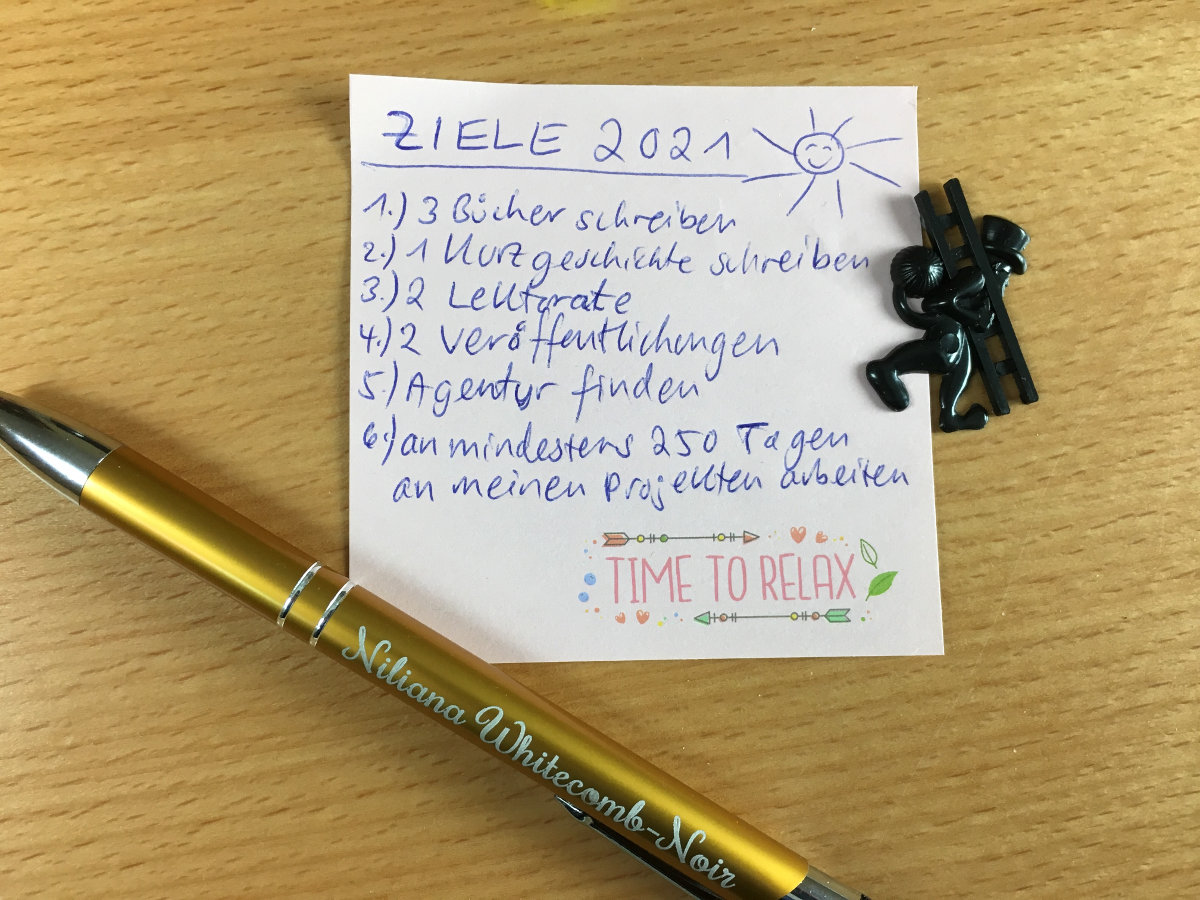 ZIELE 2021
1.) 3 Bücher schreiben
2.) 1 Kurzgeschichte schreiben
3.) 2 Lektorate
4.) 2 Veröffentlichungen
5.) Agentur finden
6.) an mindestens 250 Tagen
an meinen Projekten arbeiten
TIME TO RELAX
Niliana Whitecomb-Noir